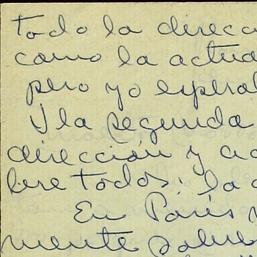 todo la direcc
como la actua
pero yo espera
Y la segunda
direccion y ac
bre todos, la c
En París
mente sobre